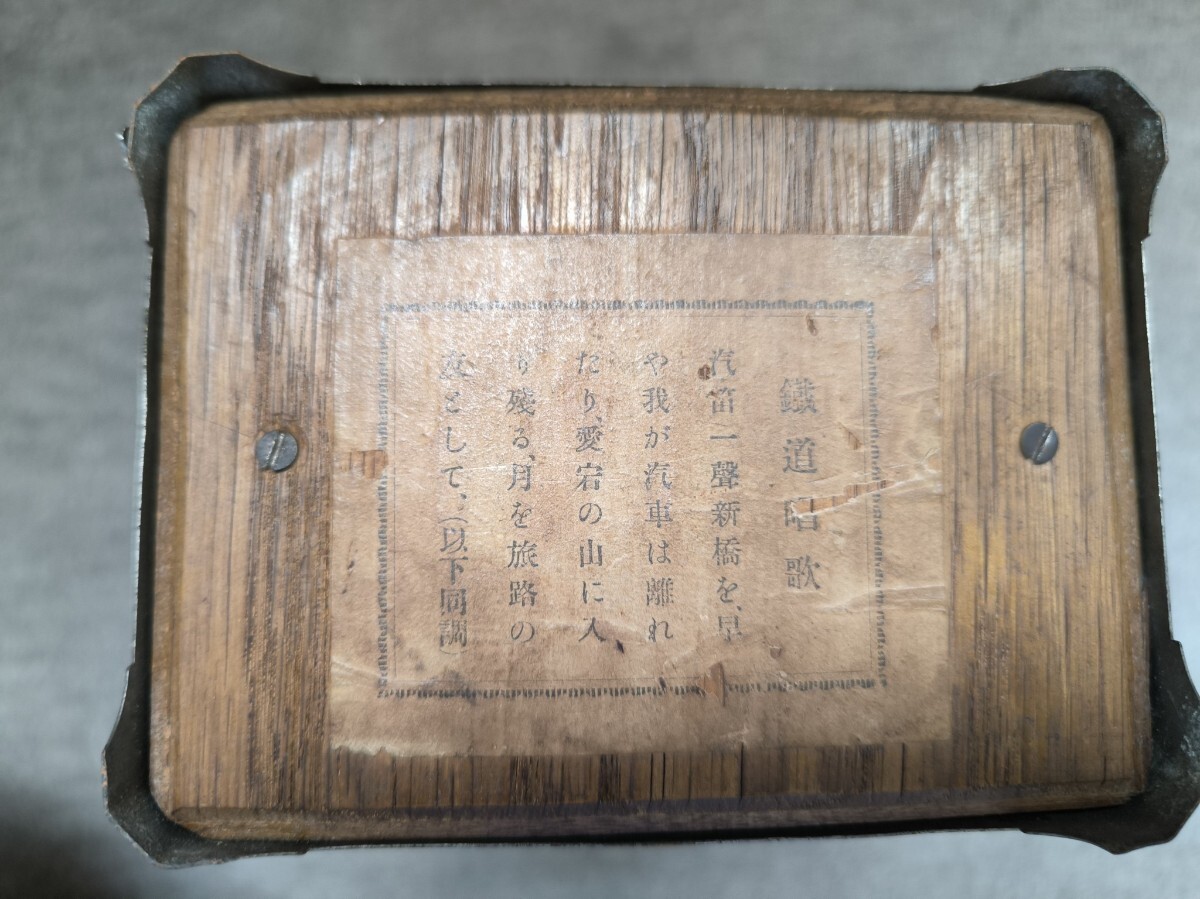 鐵道唱歌
汽笛一聲新橋を、早
や我が汽車は離れ
たり、愛宕の山に入
り殘る、月を旅路の
友として、（以下同調）